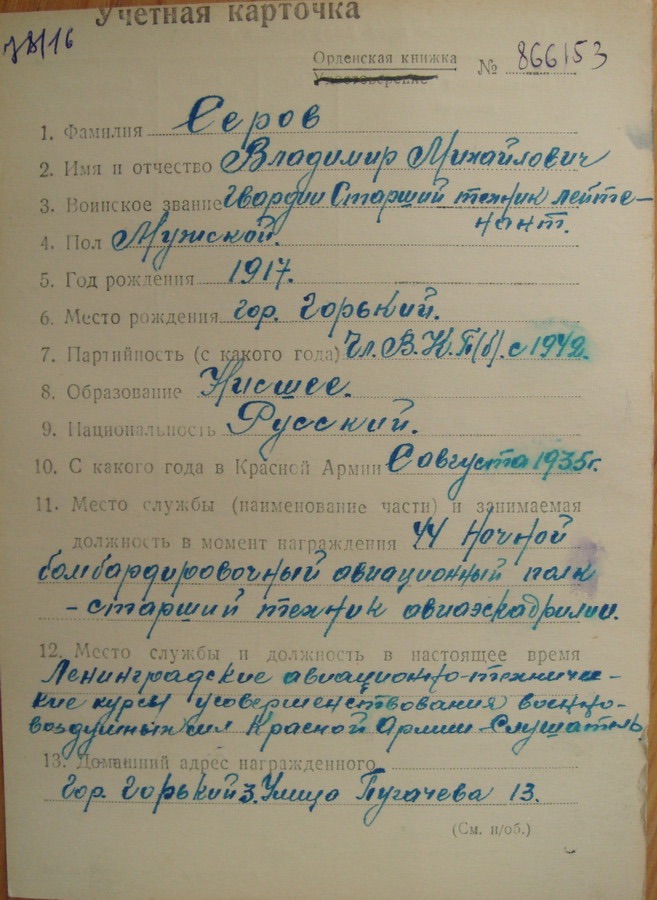 Учетная карточка
Орденская книжка
Удостоверение
№ 866153
1. Фамилия Серов
2. Имя и отчество Владимир Михайлович
3. Воинское звание гвардии Старший техник лейте-
нант.
4. Пол Мужской.
5. Год рождения 1917.
6. Место рождения гор. Горький.
7. Партийность (с какого года) Чл. В.К.П(б). с 1942.
8. Образование Низшее.
9. Национальность Русский.
10. С какого года в Красной Армии С августа 1935г.
11. Место службы (наименование части) и занимаемая
должность в момент награждения 44 Ночной
бомбардировочный авиационный полк
- старший техник авиаэскадрилии.
12. Место службы и должность в настоящее время
Ленинградские авиационно-техничес-
кие курсы усовершенствования военно-
воздушных сил Красной Армии - Слушатель
13. Домашний адрес награжденного
гор. Горький 3. Улица Пугачева 13.
(См. н/об.)